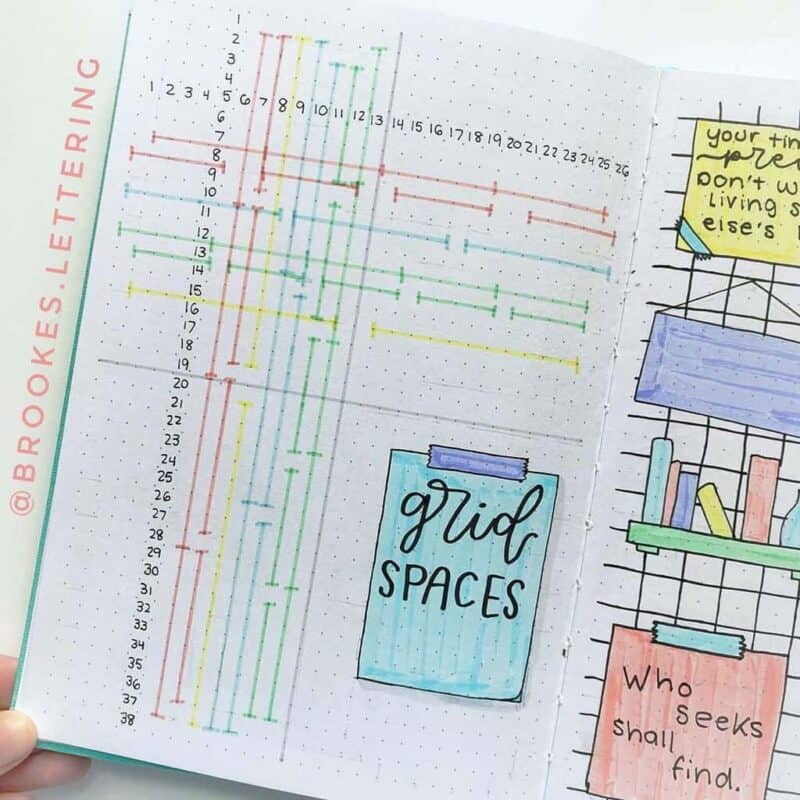 @BROOKES.LETTERING
1
2
3
4
1 2 3 4 5 6 7 8 9 10 11 12 13 14 15 16 17 18 19 20 21 22 23 24 25 26
6
7
8
9
10
11
12
13
14
15
16
17
18
19
20
21
22
23
24
25
26
27
28
29
30
31
32
33
34
35
36
37
38
grid
SPACES
your
Don't
living
else's
Who
seeks
shall
find.